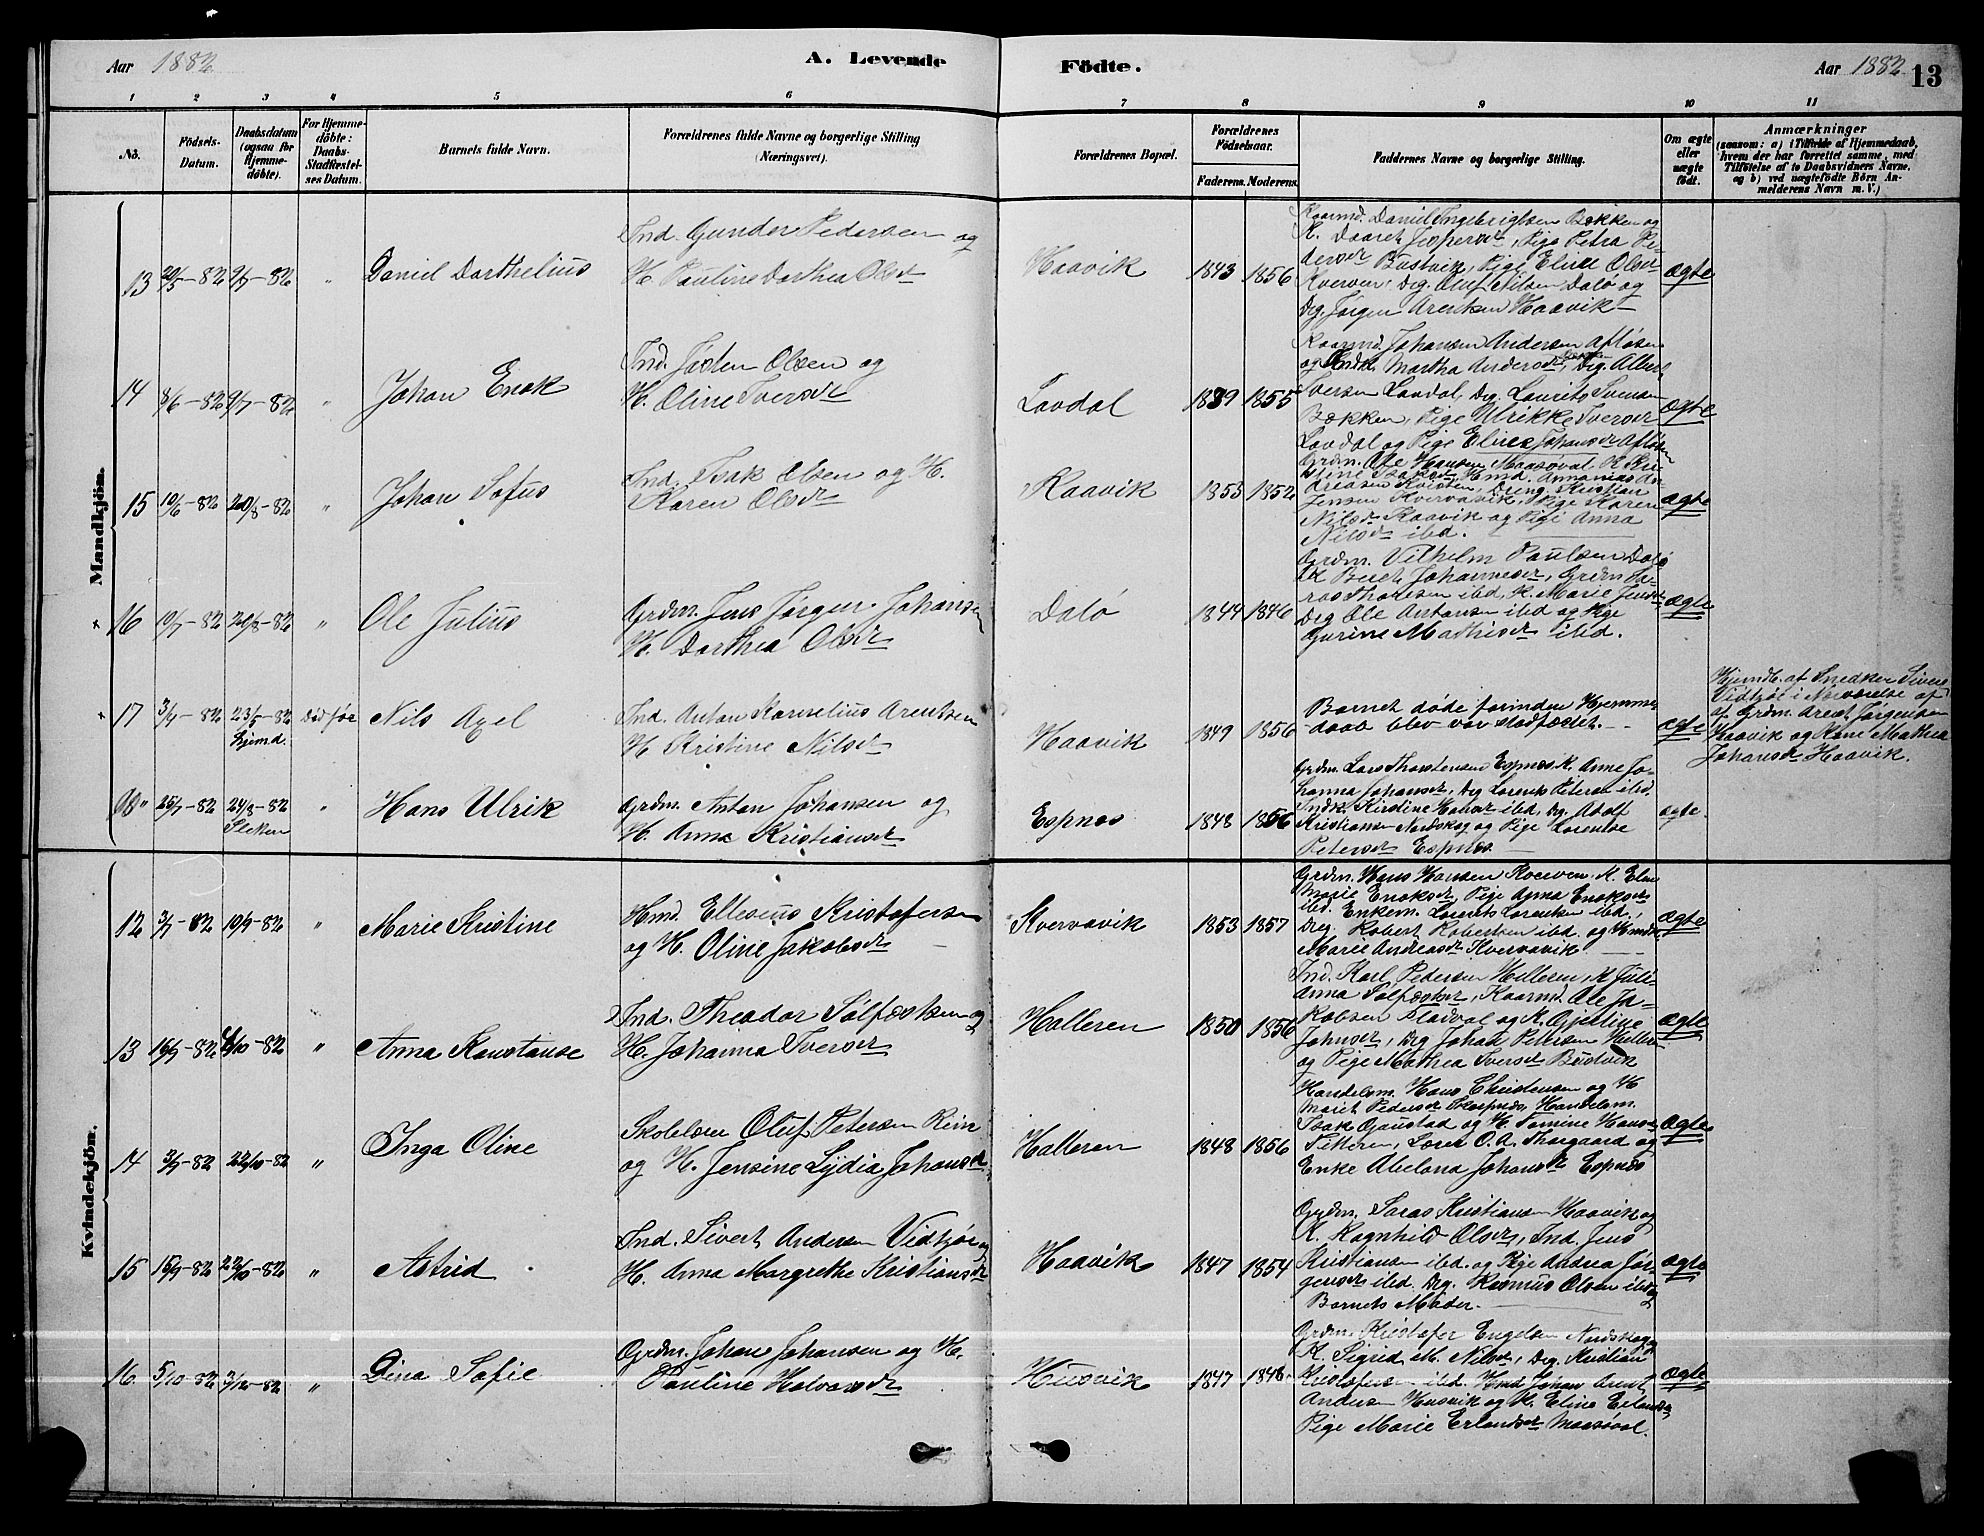 Aar 1882 A. Levende Födte. Aar 1882 13
1 2 3 4 5 6 7 8 9 10 11
No. Födsels-Datum. Daabsdatum (ogsaa for Hjemme-döbte). For Hjemme-döbte: Daabs-Stadfæstel-ses Datum. Barnets fulde Navn. Forældrenes fulde Navne og borgerlige Stilling (Næringsvei). Forældrenes Bopæl. Forældrenes Födselsaar. Faderens. Moderens. Faddernes Navne og borgerlige Stilling. Om ægte eller uægte födt. Anmærkninger (saasom: a) i Tilfælde af Hjemmedaab, hvem der har forrettet samme, med Tilföielse af to Daabsvidners Navne, og b) ved uægtefödte Börn An-melderens Navn m. V.)
Mandkjön.
13 30/5-82 9/7-82 " Daniel Dorthelius
Ind. Gunder Pedersen og
H. Pauline Dorthea Olsdr
Haavik 1843 1856
Kaarmd. Daniel Ingebrigtsen Bekken og
K. Daaret Jespersdr, Pige Petra Pe-
dersdr Bustvik, Pige Elise Olsdr
Kverven, Dg. Oluf Nilsen Dalø og
Dg. Jørgen Arentsen Haavik
ægte
14 8/6-82 9/7-82 " Johan Enok
Ind. Josten Olsen og
H. Oline Iversdr
Lavdal 1839 1855
Kaarmd. Johansen Andersen Afløsen
og Indk. Martha Andersdr, Dg. Albert
Iversen Lavdal, Dg. Laurits Svensen
Bekken, Pige Ulrikke Iversdr
Lavdal og Pige Elise Johansdr Afløsen
ægte
15 10/6-82 20/8-82 " Johan Sofus
Ind. Isak Olsen og H.
Karen Olsdr
Kaavik 1853 1852
Grdm. Ole Hansen Maasøval, K. Kri-
stine Isaksdr, Hmd. Annanias An-
dreasen Kvisten, Dreng Kristian
Jensen Kvervavik, Pige Karen
Nilsdr Kaavik og Pige Anna
Nilsdr ibd.
ægte
× 16 10/7-82 20/8-82 " Ole Julius
Grdm. Jens Jørgen Johansen
H. Dorthea Olsdr
Dalø 1844 1846
Grdm. Vilhelm Paulsen Dalø
K Berit Johannesdr, Grdm La-
ras Thoresen ibd, K. Marie Jensdr
Dg Ole Antonsen ibd og Pige
Gurine Mathisdr ibd.
ægte
× 17 3/4-82 23/5-82 hjemd. Død før Nils Axel
Ind. Anton Kornelius Arentsen
H Kristine Nilsdr
Haavik 1849 1856
Barnet døde forinden Hjemme-
daab blev vor stadfæstet.
ægte
Hjemdb. af Snedker Sivert
Vidtjøe i Nærværelse af
Grdm. Arent Jørgensen
Haavik og Kone Mathea
Johansdr Haavik.
18 " 25/7-82 24/8-82 " Hans Ulrik
Grdm. Anton Johansen og
H. Anna Kristiansdr
Espnes 1848 1856
Grdm. Lars Thorstensen Espnes K. Anne Jo-
hanna Johansdr, Dg Lorents Petersen ibd.
Indk. Kirstine Hansdr ibd, Dg. Adolf
Kristiansen Nordskog og Pige Lorentse
Petersdr Espnes
ægte.
Kvindekjön.
12 3/7-82 10/9-82 " Marie Kristine
Hmd. Elleseus Kristofersen
og H. Oline Jakobsdr
Kvervavik 1853 1857
Grdm. Hans Hansen Kverven, K. Elen
Marie Enoksdr, Pige Anna Enoksdr
ibd. Enkem. Lorents Lorentsen ibd.,
Dreg. Robert Robertsen ibd. og Hmdk.
Marie Andreasdr Kvervavik
ægte
13 16/9-82 /10-82 " Anna Konstanse
Ind. Theodor Sølfestsen og
H. Johanna Iversdr
Halleren 1850 1856
Ind. Karl Pedersen Helleren, K Juli-
Anna Sølfestdr, Kaarmd. Ole Ja-
kobsen Fladval og K. Gjertine
Johnsdr, Dg Johan Petersen Helleren
og Pige Mathea Iversdr Bustvik
ægte
14 3/9-82 22/10-82 " Inga Oline
Skolelærer Oluf Petersen Rein
og H. Jensine Lydia Johansdr
Halleren 1848 1856
Handelsm. Hans Christensen og H
Marit Pedersdr Skarpnes, Handelsm.
Isak Gjaustad og H. Tomine Hansdr
Titteren, Lærer O. A. Thorgaard og
Enke Abelona Johansdr Espnes
ægte
15 15/9-82 22/10-82 " Astrid
Ind. Sivert Andersen Vidtjøe og
H. Anna Margrethe Kristiansdr
Haavik 1847 1854
Grdm. Saras Kristiansen Haavik og
K. Ragnhild Olsdr, Ind. Jens
Kristiansen ibd. og Pige Andrea Jør-
gensdr ibd. Dg. Rasmus Olsen ibd og
Barnets Moder.
ægte
16 5/10-82 3/12-82 " Dina Sofie
Grdm. Johan Johansen og H.
Pauline Halvorsdr
Husvik 1847 1848
Grdm. Kristofer Engelsen Nordskag og
K. Sigrid M. Nilsdr, Dg. Kristian
Kristofersen ibd. Hmd Johan Arent
Andersen Husvik og K. Eline Erlandsdr
Pige Marie Erlandsdr Maasøval.
ægte